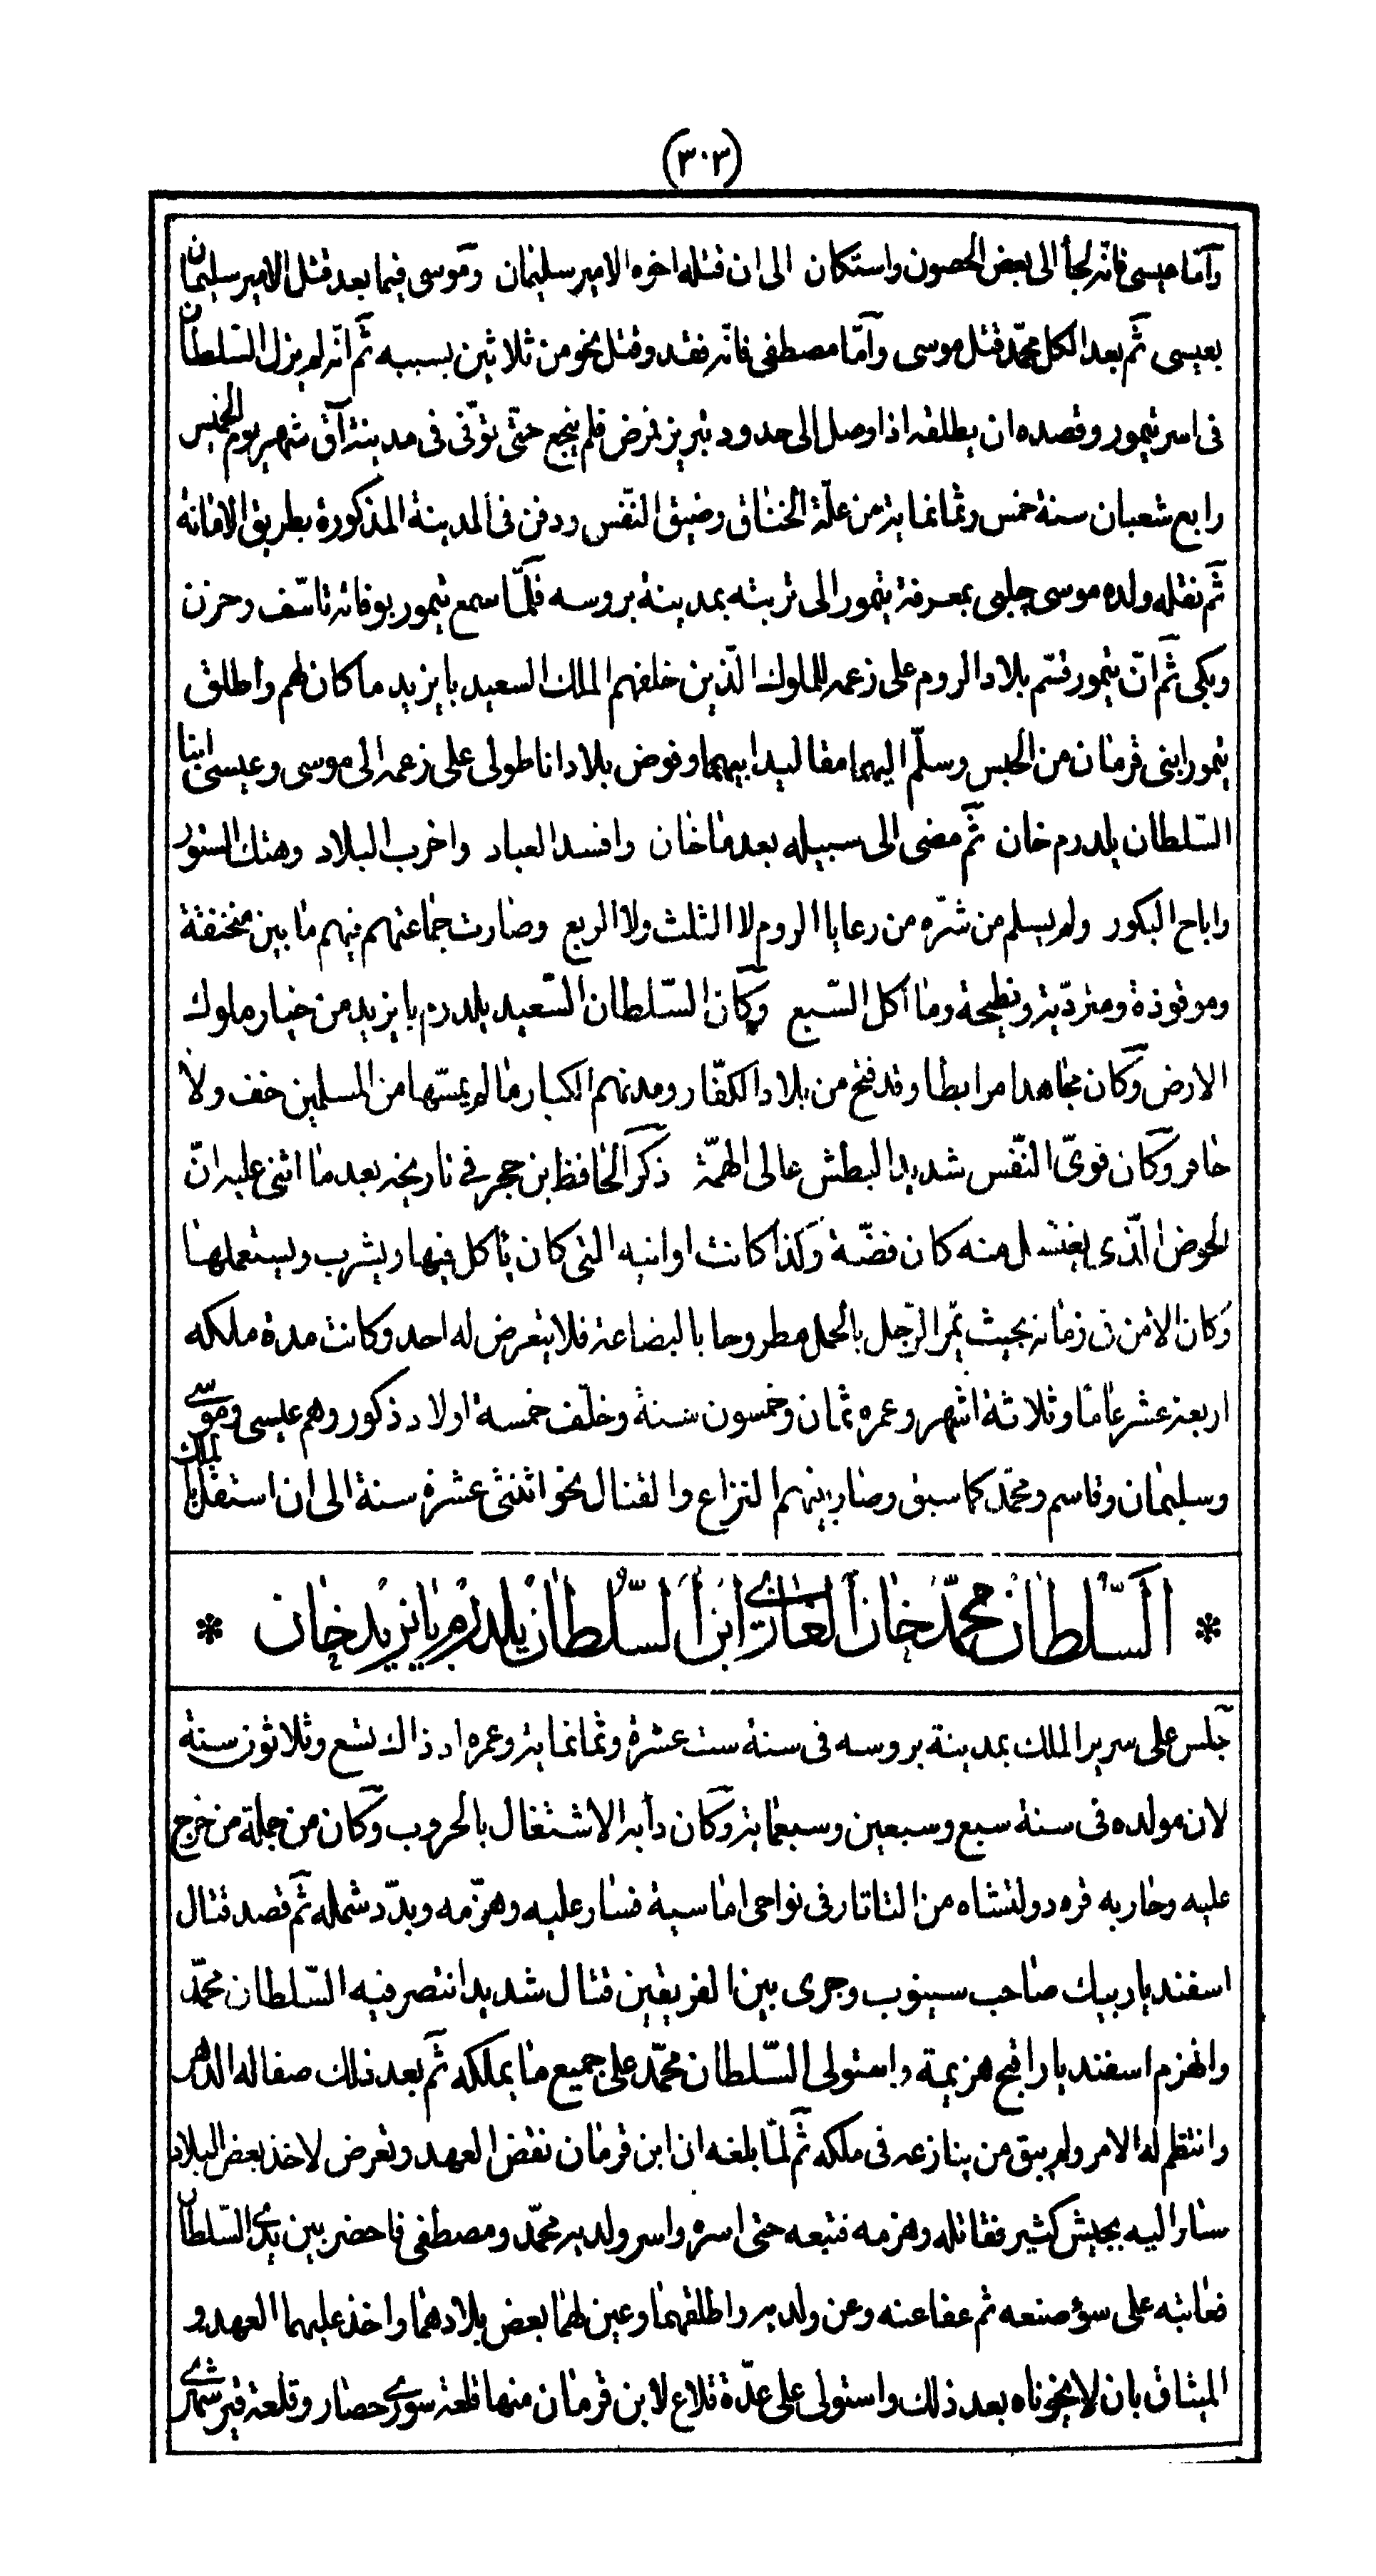 (٣٠٣)
وأمّا عيسى فانّه لجأ الى بعض الحصون واستكان الى ان قتله اخوه الامير سليمان وموسى فيما بعد قتل الامير سليمان
بعيسى ثمّ بعد الكل محمّد قتل موسى وأمّا مصطفى فانّه فقد وقتل نحو من ثلاثين بسببه ثمّ انّه لم يزل السّلطان
فى اسر تيمور وقصده ان يطلقه اذا وصل الى حدود تبريز فمرض فلم ينجع حتّى توفّى فى مدينة آق شهر يوم الخميس
رابع شعبان سنة خمس وثمانماية من علّة الخناق وضيق النّفس ودفن فى المدينة المذكورة بطريق الامانة
ثمّ نقله ولده موسى چلبى بمعرفة تيمور الى تربته بمدينة بروسه فلمّا سمع تيمور بوفاته تاسّف وحزن
وبكى ثمّ انّ تيمور قسّم بلاد الروم على زعمه للملوك الّذين خلفهم الملك السعيد بايزيد ما كان لهم واطلق
تيمور ابنى قرمان من الحبس وسلّم اليهما مقاليد ابيهما وفوض بلاد اناطولى على زعمه الى موسى وعيسى ابنا
السّلطان يلدرم خان ثمّ مضى الى سبيله بعد ما خان وافسد العباد واخرب البلاد وهتك الستور
واباح البكور ولم يسلم من شرّه من رعايا الروم لا الثلث ولا الربع وصارت جماعتهم فيهم ما بين منخنقة
وموقوذة ومتردّية ونطيحة وما اكل السّبع وكان السّلطان السّعيد يلدرم بايزيد من خيار ملوك
الارض وكان مجاهدا مرابطا وقد فتح من بلاد الكفّار ومدنهم الكبار ما لم يمسّها من المسلمين خف ولا
حافر وكان قوىّ النّفس شديد البطش عالى الهمّة ذكر الحافظ بن حجر فى تاريخه بعد ما اثنى عليه انّ
الحوض الّذى يغتسل منه كان فضّة وكذا كانت اوانيه التى كان يأكل فيها ويشرب ويستعملها
وكان الامن فى زمانه بحيث يمرّ الرّجل بالحمل مطروحا بالبضاعة فلا يتعرض له احد وكانت مدة ملكه
اربعة عشر عاما وثلاثة اشهر وعمره ثمان وخمسون سنة وخلّف خمسة اولاد ذكور وهم عيسى وموسى
وسليمان وقاسم ومحمّد كما سبق وصار بينهم النزاع والقتال نحو اثنتى عشرة سنة الى ان استقل بالملك
* السّلطان محمّد خان الغازى ابن السّلطان يلدرم بايزيد خان *
جلس على سرير الملك بمدينة بروسه فى سنة ست عشرة وثمانماية وعمره اذ ذاك تسع وثلاثون سنة
لان مولده فى سنة سبع وسبعين وسبعماية وكان دأبه الاشتغال بالحروب وكان من جملة من خرج
عليه وحاربه قره دولتشاه من التاتار فى نواحى اماسية فسار عليه وهزّمه وبدّد شمله ثمّ قصد قتال
اسفنديار بيك صاحب سينوب وجرى بين الفريقين قتال شديد انتصر فيه السّلطان محمّد
وانهزم اسفنديار اقبح هزيمة واستولى السّلطان محمّد على جميع ما يملكه ثمّ بعد ذلك صفا له الدهر
وانتظم له الامر ولم يبق من ينازعه فى ملكه ثمّ لمّا بلغه ان ابن قرمان نقض العهد وتعرض لاخذ بعض البلاد
سار اليه بجيش كثير فقاتله وهزمه فتبعه حتى اسره واسر ولديه محمّد ومصطفى فاحضر بين يدى السّلطان
فعاتبه على سوء صنعه ثم عفا عنه وعن ولديه واطلقهما وعين لهما بعض بلادهما واخذ عليهما العهد و
الميثاق بان لا يخوناه بعد ذلك واستولى على عدّة قلاع لابن قرمان منها قلعة سورى حصار وقلعة قيرشهرى